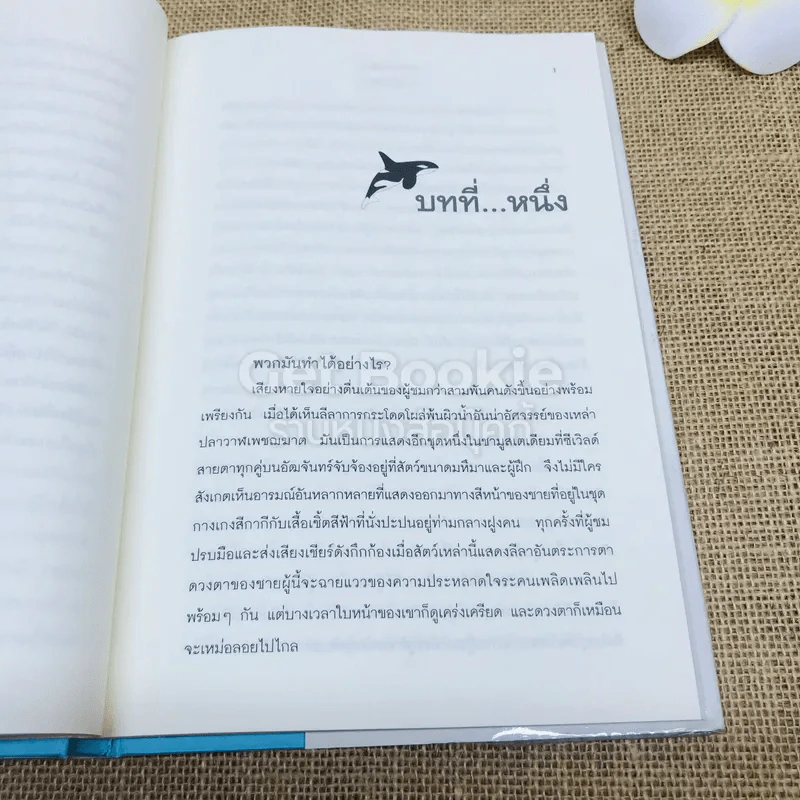 1
บทที่...หนึ่ง
พวกมันทำได้อย่างไร?
เสียงหายใจอย่างตื่นเต้นของผู้ชมกว่าสามพันคนดังขึ้นอย่างพร้อม
เพรียงกัน เมื่อได้เห็นลีลาการกระโดดโผล่พ้นผิวน้ำอันน่าอัศจรรย์ของเหล่า
ปลาวาฬเพชฌฆาต มันเป็นการแสดงอีกชุดหนึ่งในชามูสเตเดียมที่ซีเวิลด์
สายตาทุกคู่บนอัฒจันทร์จับจ้องอยู่ที่สัตว์ขนาดมหึมาและผู้ฝึก จึงไม่มีใคร
สังเกตเห็นอารมณ์อันหลากหลายที่แสดงออกมาทางสีหน้าของชายที่อยู่ในชุด
กางเกงสีกากีกับเสื้อเชิ้ตสีฟ้าที่นั่งปะปนอยู่ท่ามกลางฝูงคน ทุกครั้งที่ผู้ชม
ปรบมือและส่งเสียงเชียร์ดังกึกก้องเมื่อสัตว์เหล่านี้แสดงลีลาอันตระการตา
ดวงตาของชายผู้นี้จะฉายแววของความประหลาดใจระคนเพลิดเพลินไป
พร้อมๆ กัน แต่บางเวลาใบหน้าของเขาก็ดูเคร่งเครียด และดวงตาก็เหมือน
จะเหม่อลอยไปไกล
Get Bookie
ร้านหนังสือยุคดี